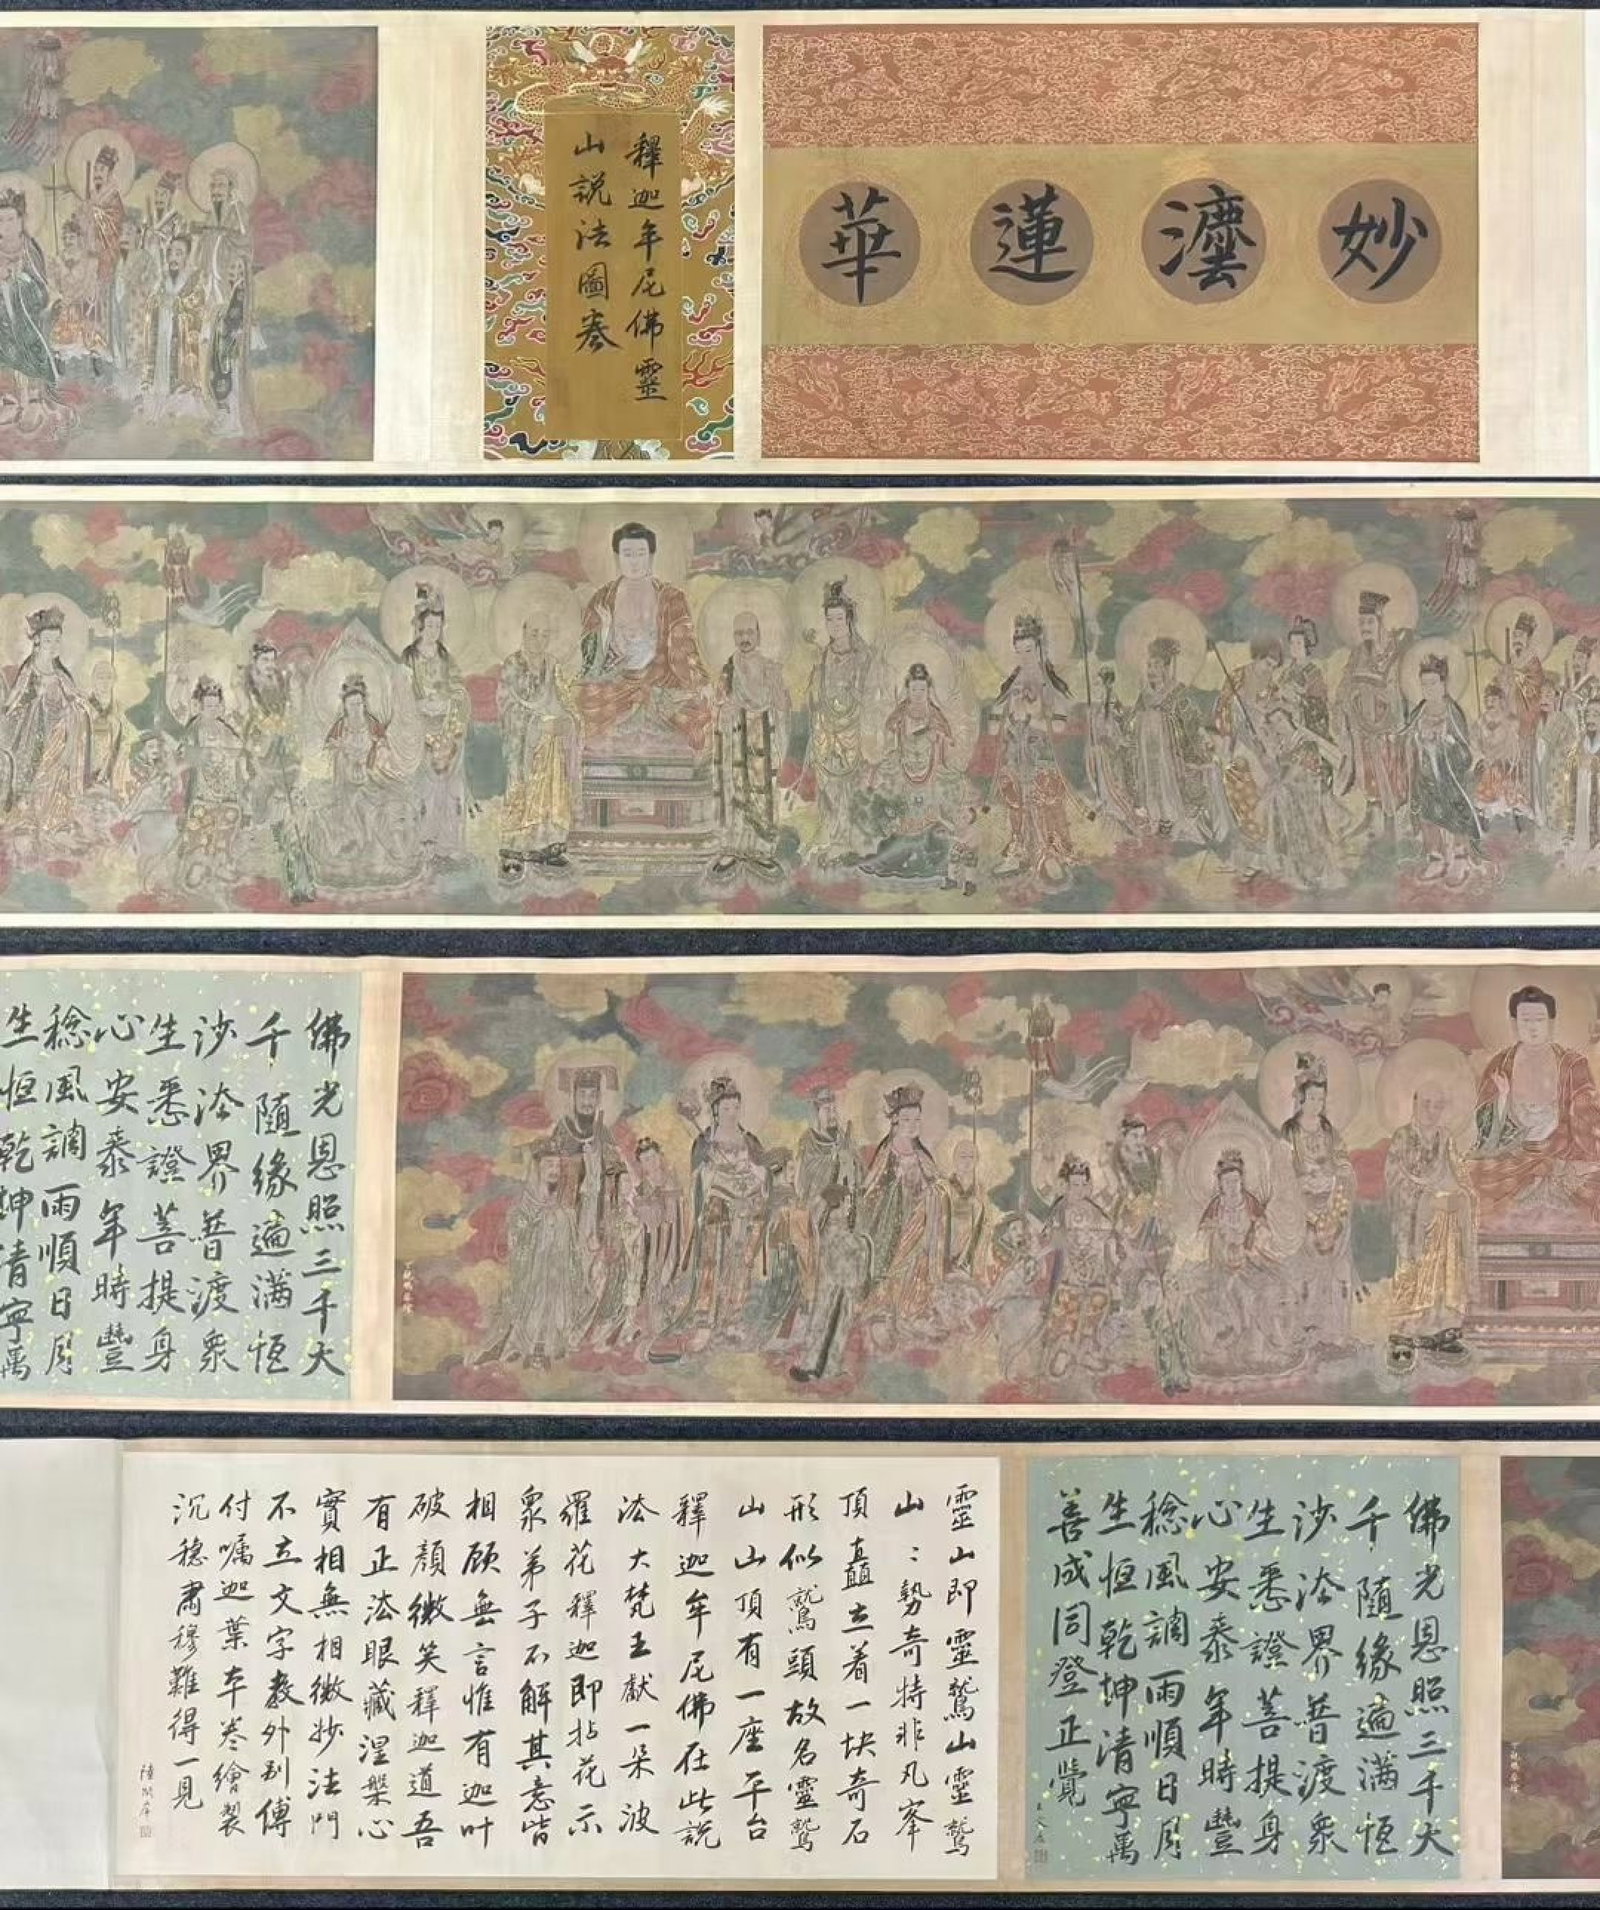 妙灋蓮華
釋迦牟尼佛靈
山說法圖卷
佛光恩照三千大
千隨緣遍满恆
沙法界普渡衆
生悉證菩提身
心安泰年時豐
稔風調雨順日月
生恆乾坤清寧萬
佛光恩照三千大
千隨緣遍满恆
沙法界普渡衆
生悉證菩提身
心安泰年時豐
稔風調雨順日月
生恆乾坤清寧萬
善成同登正覺
靈山即靈鷲山靈鷲
山山勢奇特非凡峯
頂矗立着一块奇石
形似鷲頭故名靈鷲
山山頂有一座平台
釋迦牟尼佛在此説
法大梵王獻一朵波
羅花釋迦即拈花示
衆弟子不解其意皆
相顾無言惟有迦叶
破顏微笑釋迦道吾
有正法眼藏涅槃心
實相無相微妙法門
不立文字教外别傳
付囑迦葉本卷繪製
沉穩肅穆難得一見